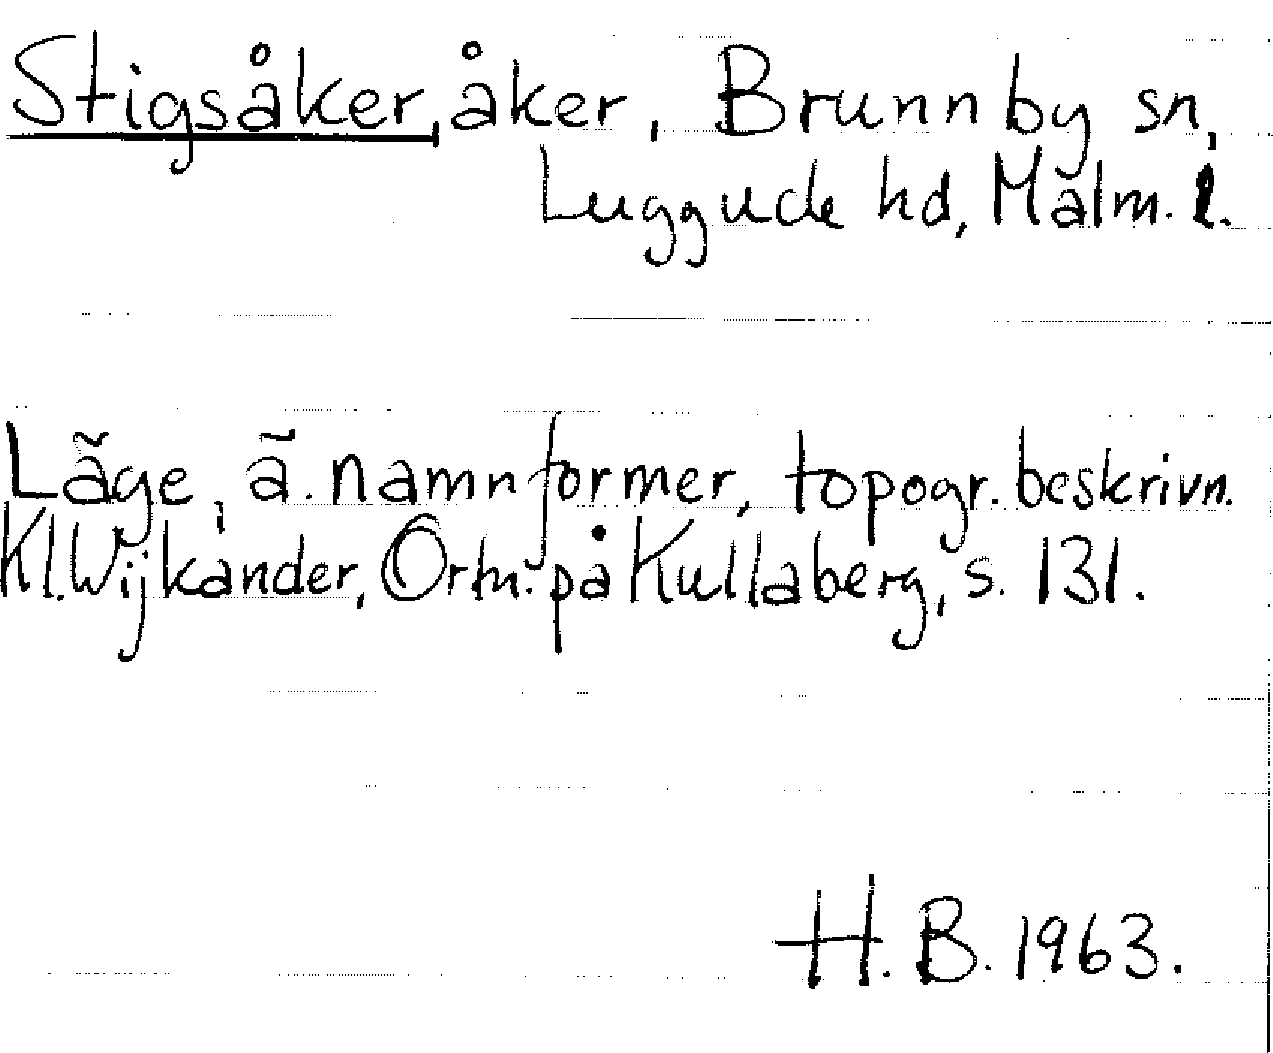 Stigsåker, åker, Brunnby sn,
Luggude hd, Malm. l.
Läge, ä. namnformer, topogr. beskrivn.
Kl. Wijkander, Ortn. på Kullaberg, s. 131.
H. B. 1963.